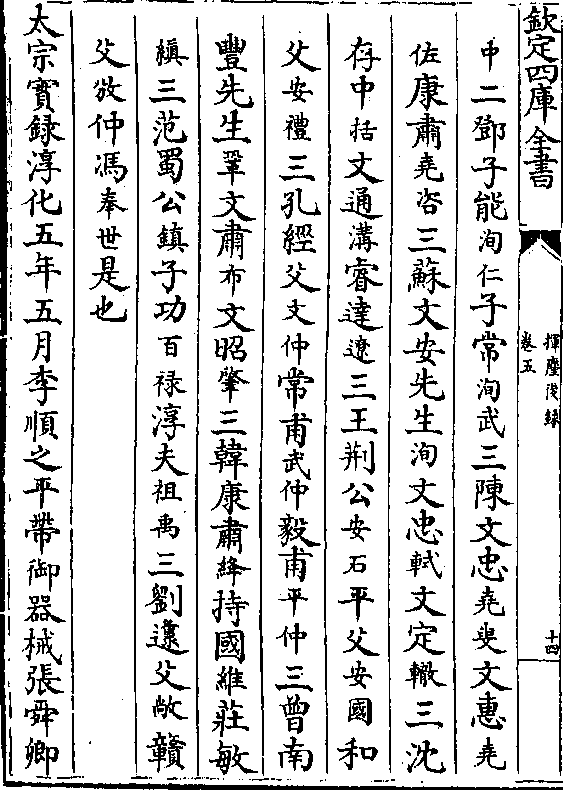 欽定四庫全書
揮麈後録
卷五
十四
中二鄧子能洵仁子常洵武三陳文忠堯叟文惠堯
佐康肅堯咨三蘇文安先生洵文忠軾文定轍三沈
存中括文通溝睿達遼三王荆公安石平父安國和
父安禮三孔經父文仲常甫武仲毅甫平仲三曾南
豐先生鞏文肅布文昭肇三韓康肅絳持國維莊敏
縝三范蜀公鎮子功百禄淳夫祖禹三劉邍父敞贛
父攽仲馮奉世是也
太宗實録淳化五年五月李順之平帶御器械張舜卿